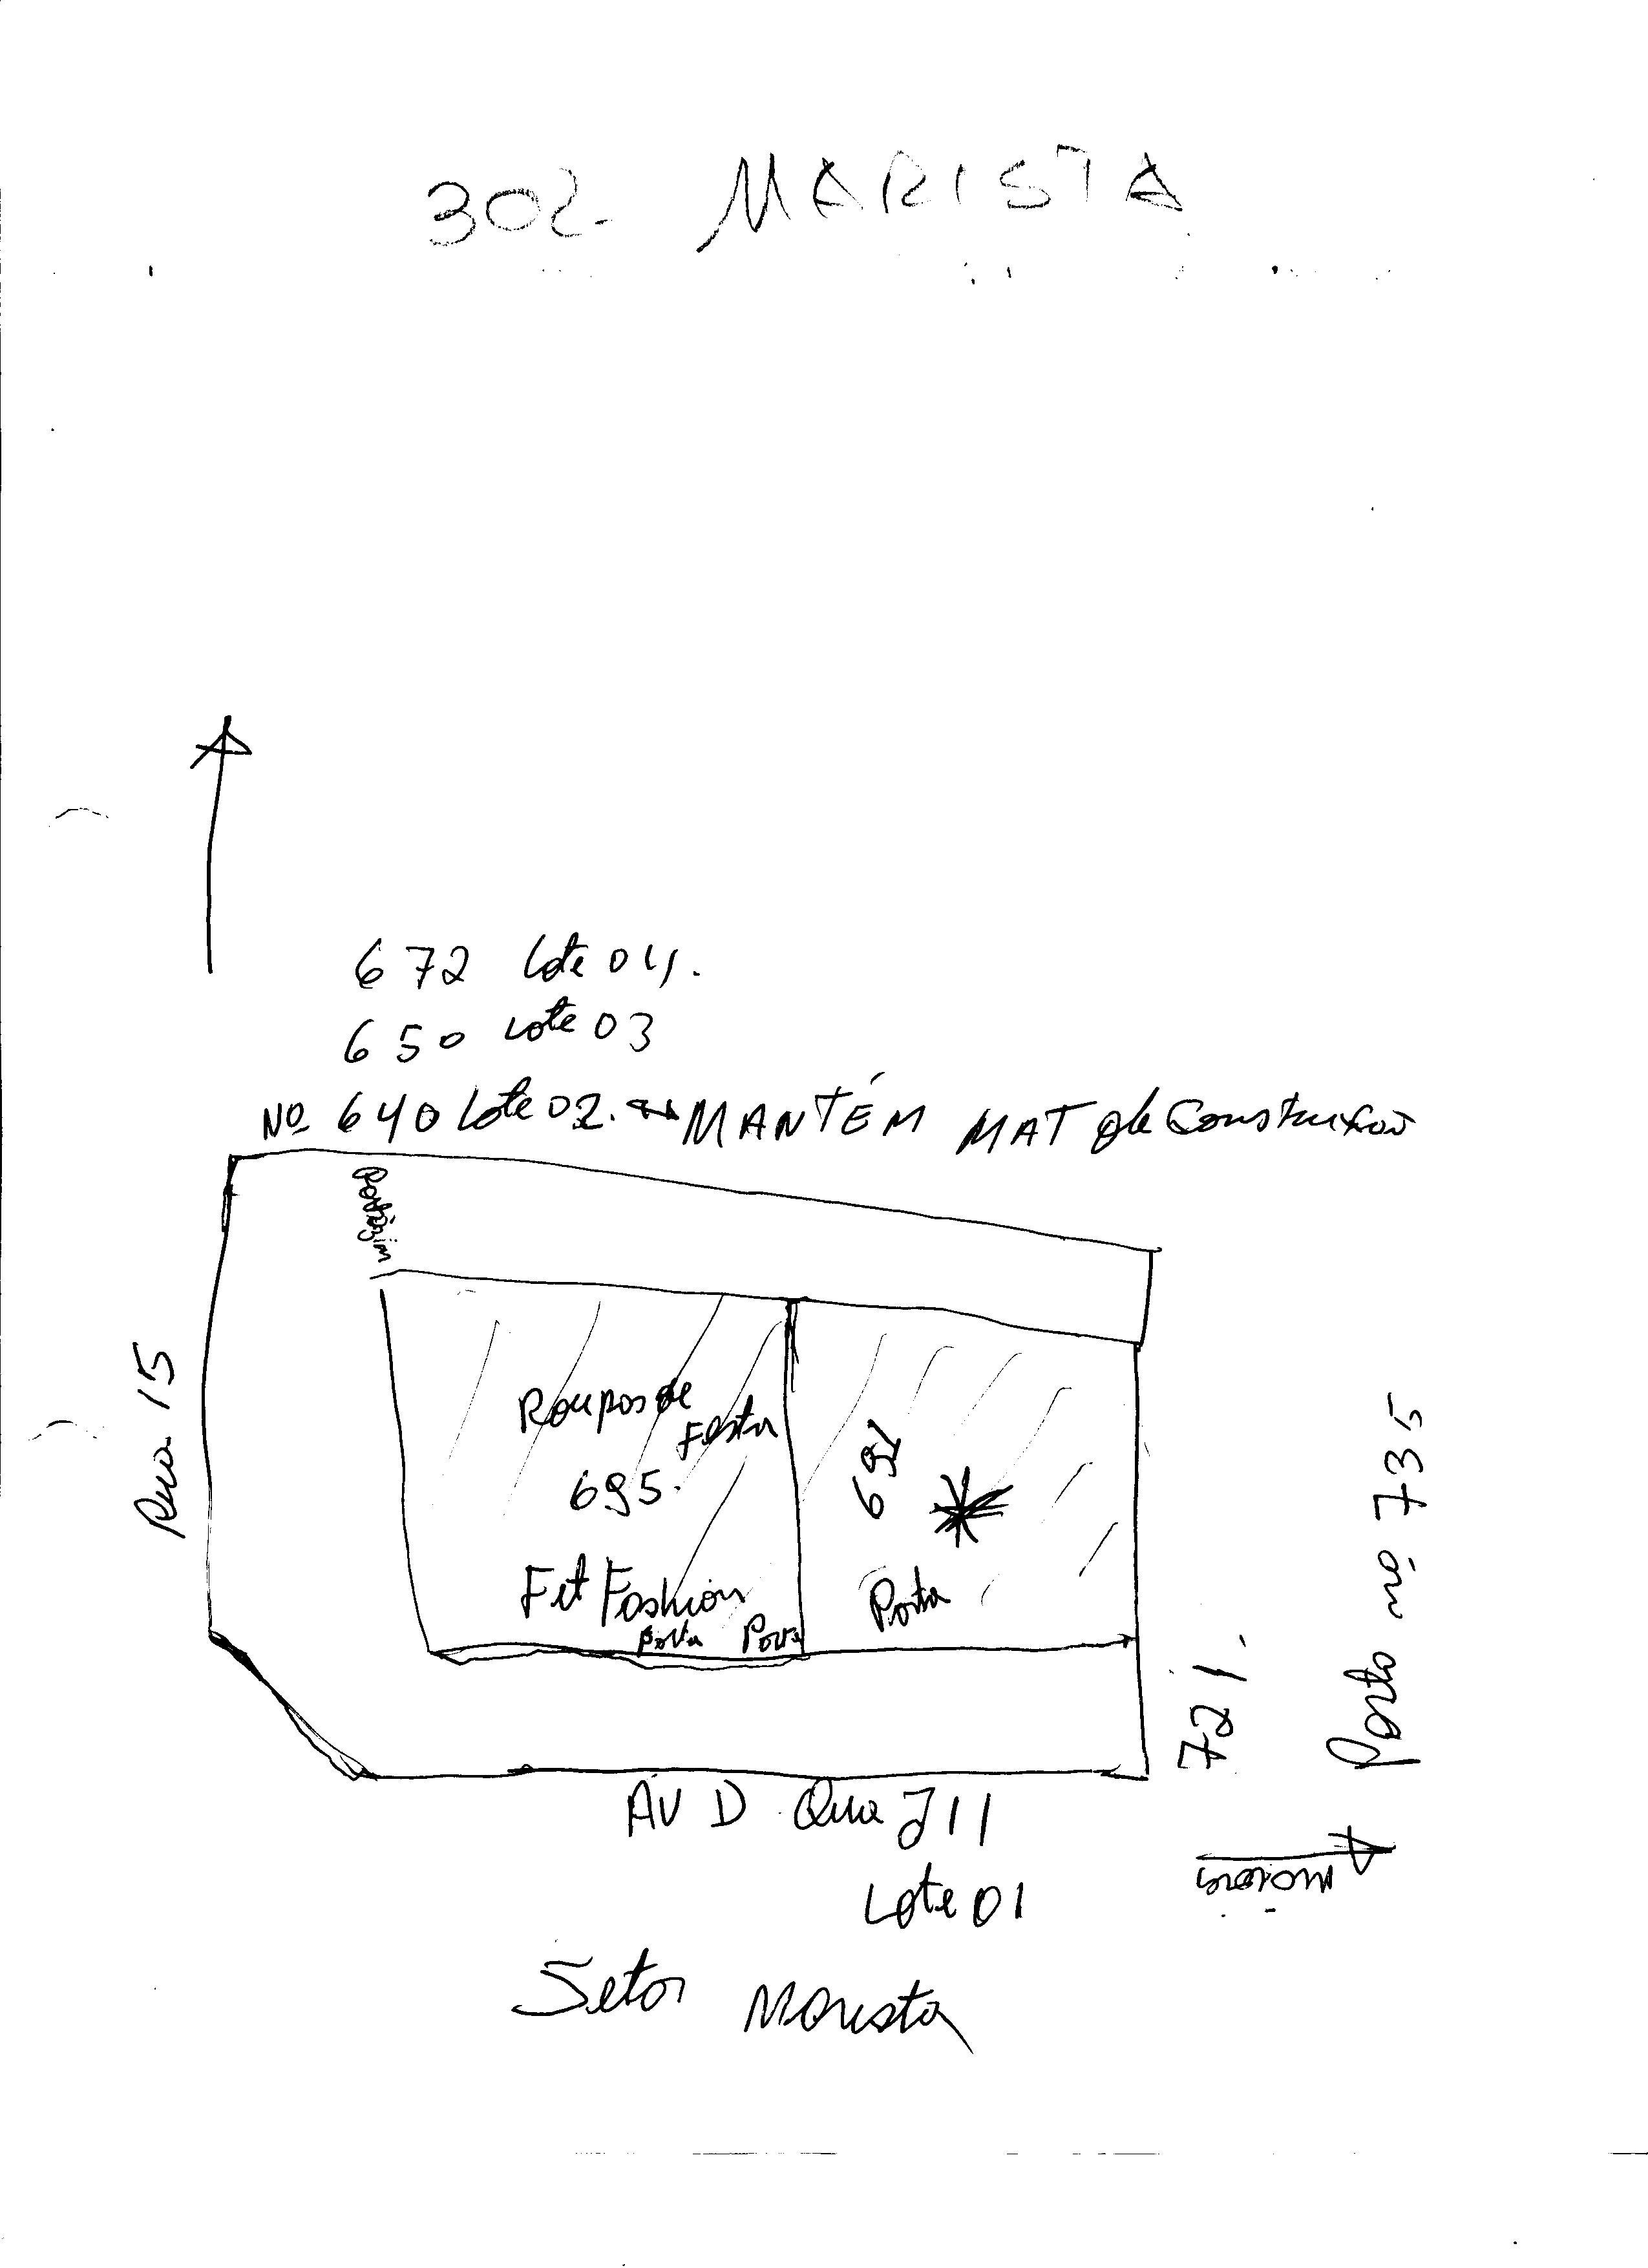 302. MARISTA
672 Lote 04.
650 Lote 03
Nº 640 Lote 02. MANTÉM MAT de Construção
Portãozim
Rua 15
Roupas de
Festa
695.
Fit Fashion
Porta Porta
Porta
721.
Porta nº 735
maiores
AV D Qua J11
Lote 01
Setor Marista